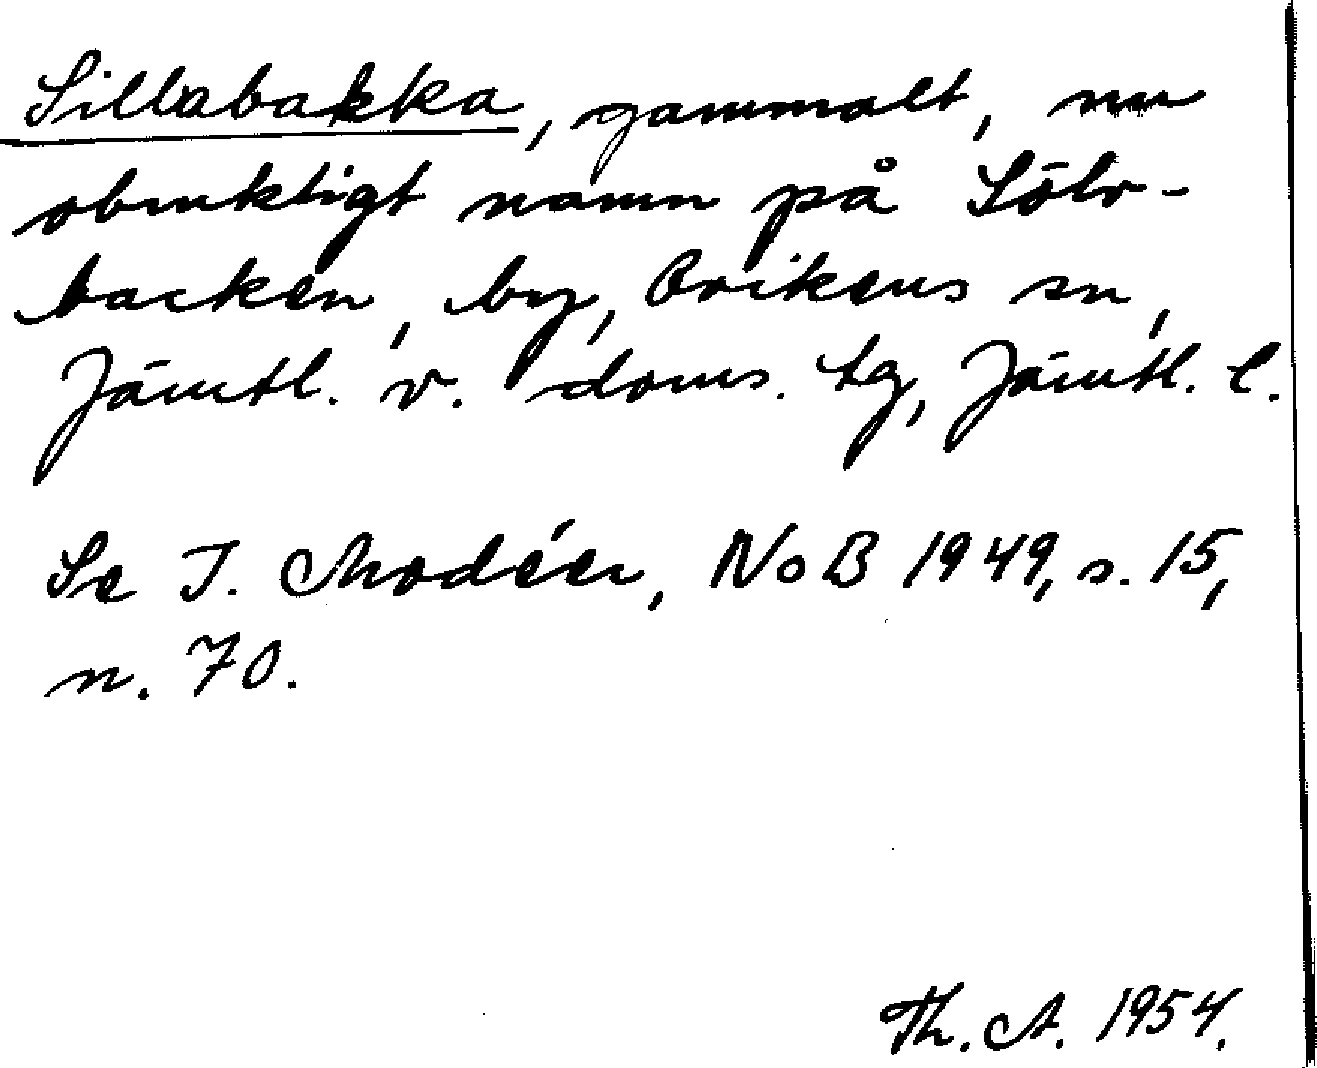 Sillabakka, gammalt, nu
obruktigt namn på Sölv-
backen, by, Ovikens sn,
Jämtl. v. doms. tg, Jämtl. l.
Se I. Modéer, NoB 1949, s. 15,
n. 70.
Th. A. 1954.